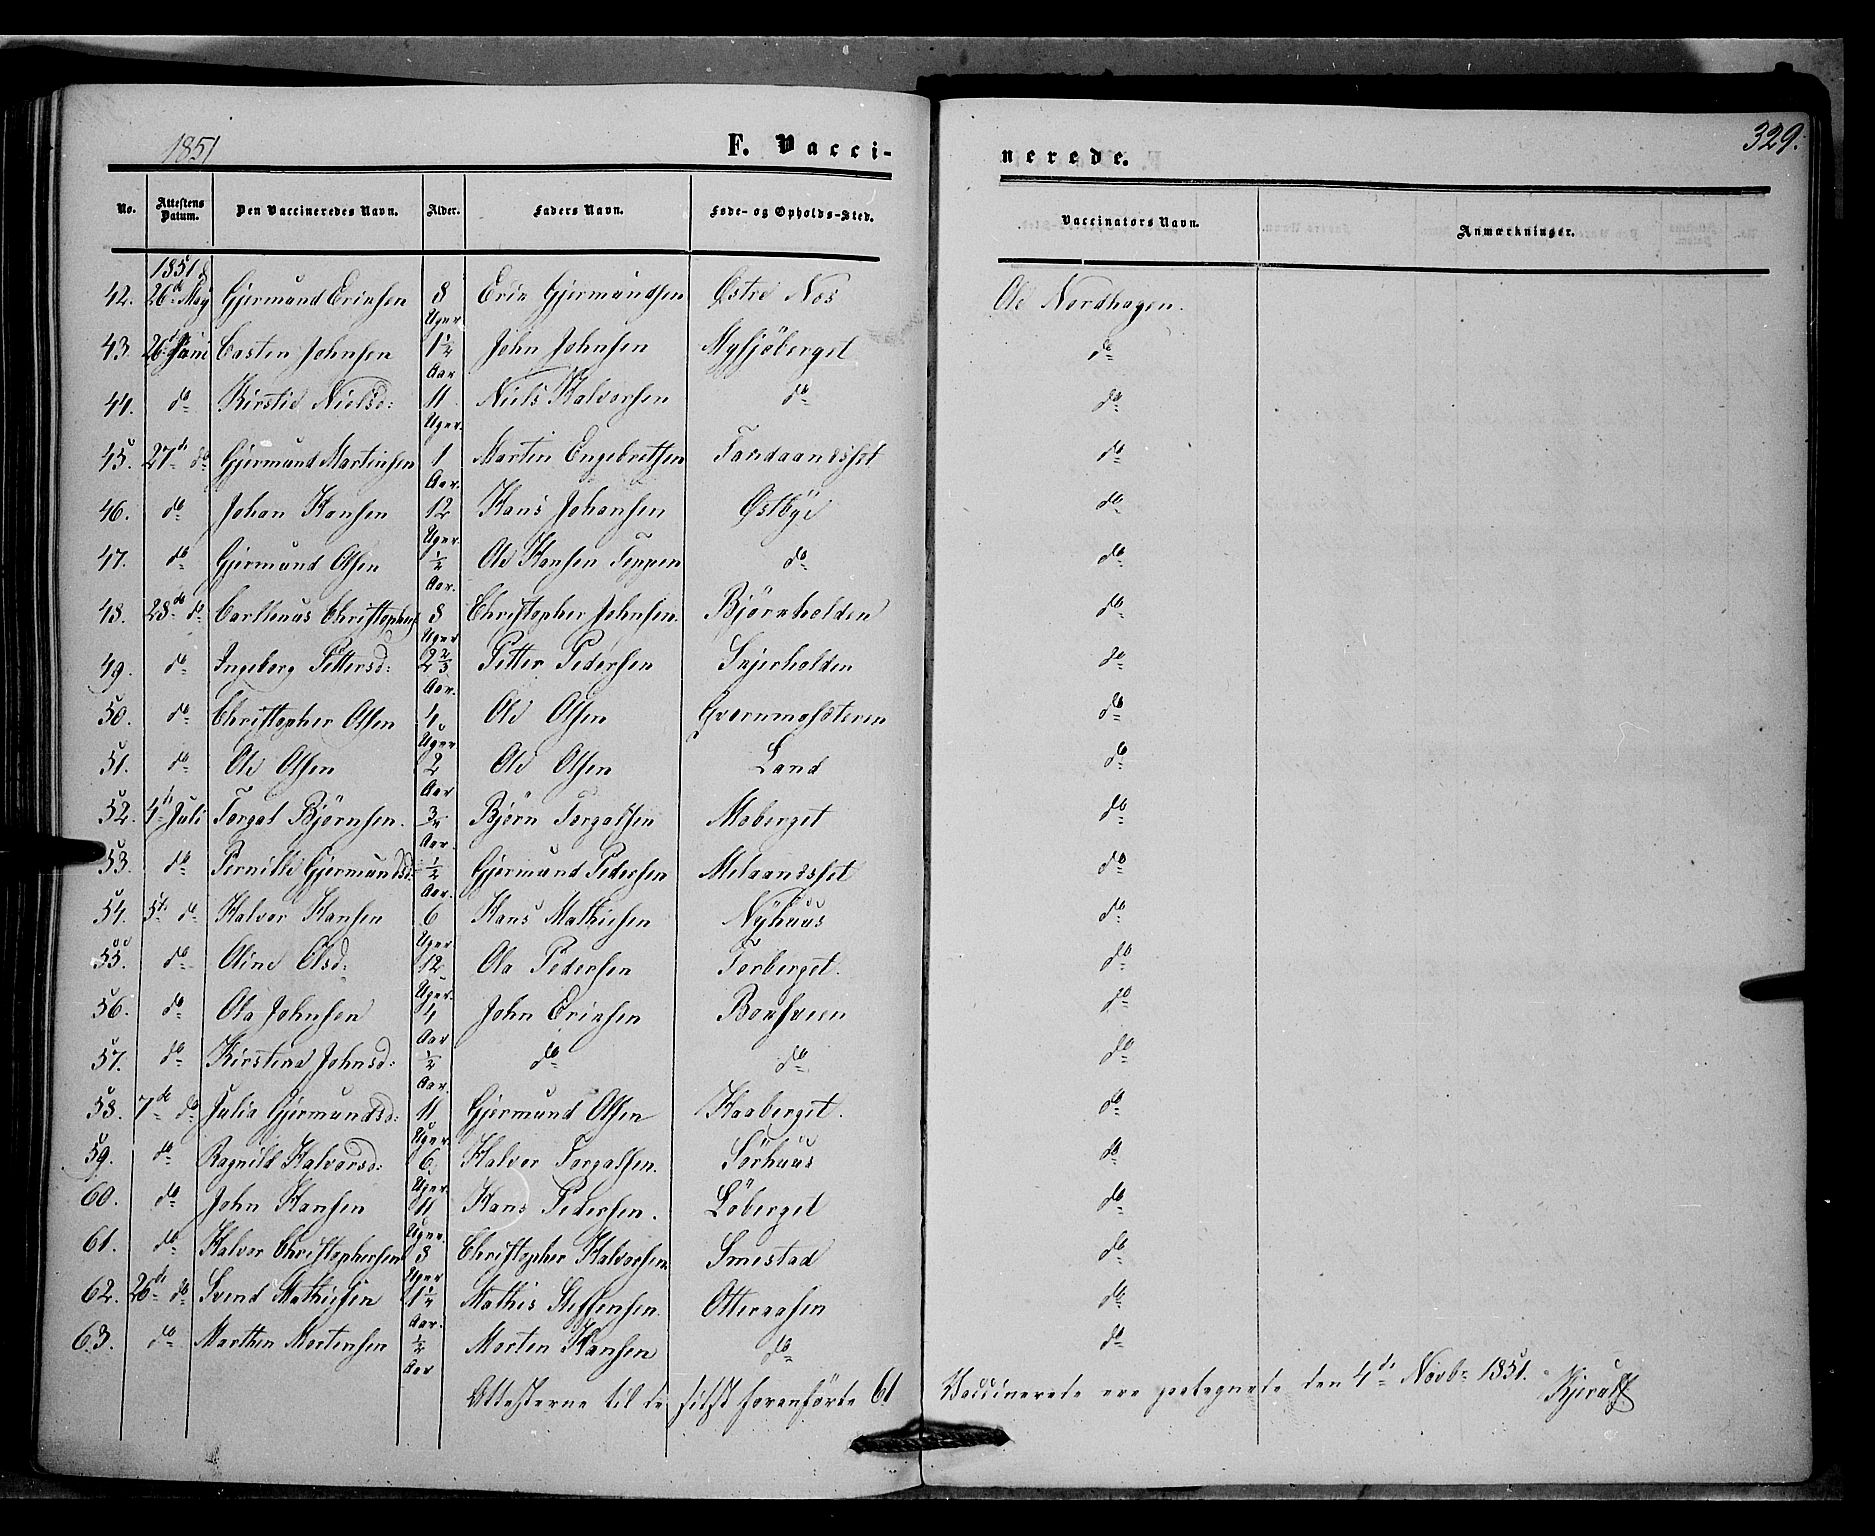 1851
F. Vacci-
nerede.
329.
No. Attestens Datum. Den Vaccineredes Navn. Alder. Faders Navn. Føde- og Opholds-Sted. Vaccinators Navn. Anmærkninger.
1851
42. 26de May Gjermund Ericksen 8 Uger Eric Gjermundsen Østre Næs Ole Nordhagen.
43. 26 Juni Casten Johnsen 1 1/2 Aar John Johnsen Mysjöberget do
44. do Kirstie Nielsd: 11 Uger. Niels Halvorsen do do
45. 27de do Gjermund Martinsen 1 Aar. Martin Engebretsen do
46. do Johan Hansen 12 Uger. Hans Johansen Østbye do
47. do Gjermund Olsen 1/2 Aar. Ole Hansen Teppen do do
48. 28de do Carllenus Christophers 8 Uger Christopher Johnsen. Björnholden do
49. do Ingeborg Pettersd: 2 2/3 Aar. Petter Pedersen Snjerholden do
50. do Christopher Olsen 4 Uger Ole Olsen Qvernmosæteren do
51. do Ole Olsen 2 Aar Ole Olsen Land do
52. 4de Juli Torgal Björnsen. 3/4 Aar. Björn Torgalsen Moberget do
53. do Pernille Gjermundsd: 1/2 Aar. Gjermund Pedersen Melaandsset do
54. 5te do Halvor Hansen 6 Uger Hans Mathiesen Nÿhuus do
55. do Oline Olsd: 12 Uger. Ola Pedersen Torberget. do
56. do Ola Johnsen 4 Aar John Ericksen do
57. do Kirstine Johnsd: 1/2 Aar. do do do
58. 7de do Julia Gjermundsd: 11 Uger. Gjermund Olsen Haaberget. do
59. do Ragnild Halvorsd: 6 Uger. Halvor Torgalsen. Sörhuus do
60. do John Hansen 11 Uger. Hans Pedersen. Löberget do
61. do Halvor Christophersen 8 Uger Christopher Halvorsen Smestad do
62. 26de do Svend Mathiesen 1 1/4 Aar. Mathis Steffensen. Otteraasen do
63. do Marthin Mortensen 1/2 Aar Morten Hansen do do
Attesterne til de sidst foranførte 61 Vaccinerede ere paategnede den 4de Novbr 1851. Kjerulf